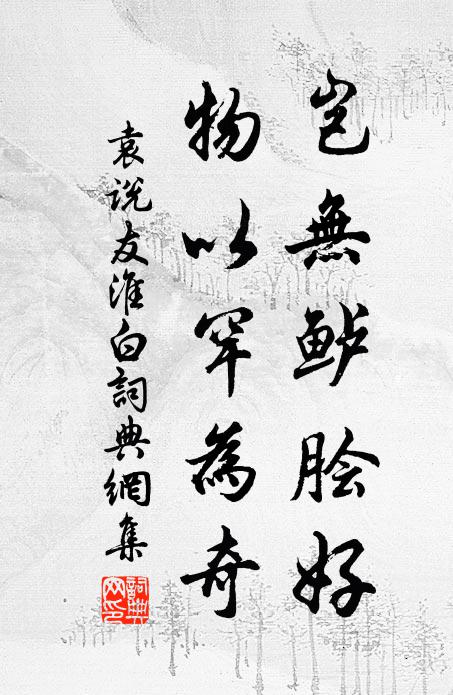 岂無鲈脍好
物以罕為奇
袁説友淮白詞典網集
詞典網印